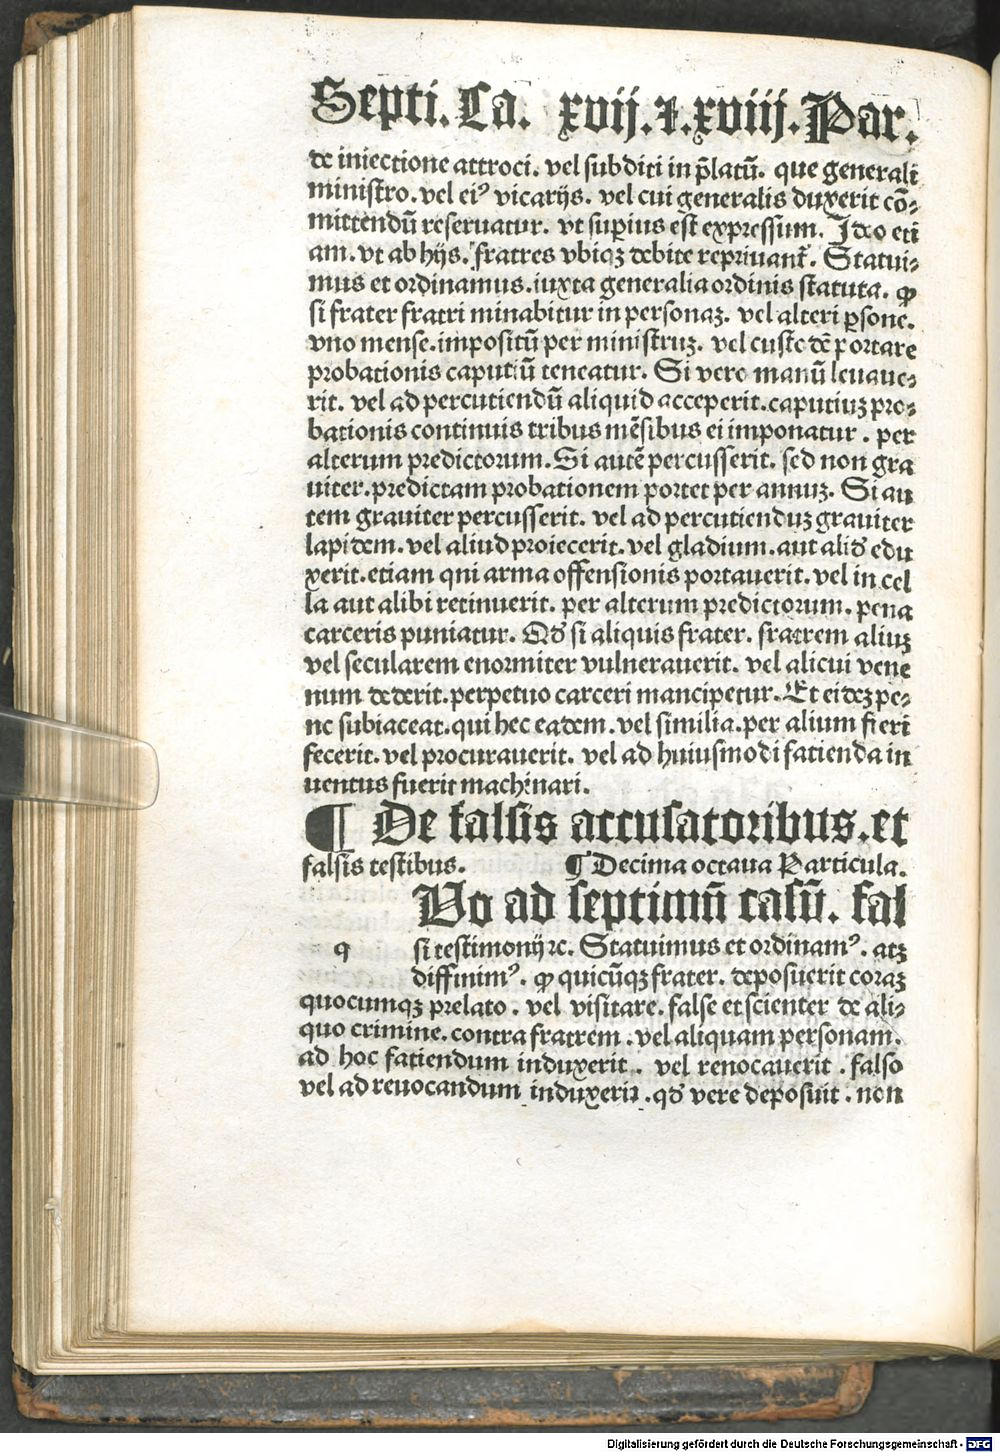 Septi. Ca. xvij. ⁊. xviij. Par.
de iniectione attroci. vel subditi in p̄latū. que generali
ministro. vel eiꝰ vicarijs. vel cui generalis duxerit cō⸗
mittendū reseruatur. vt superius est expressum. Ideo eti
am. vt ab hijs. fratres vbiqꝫ debite repriuant᷑. Statui⸗
mus et ordinamus. iuxta generalia ordinis statuta. ꝙ
si frater fratri minabitur in personaꝫ. vel alteri ꝑsone.
vno mense. impositū per ministruꝫ. vel custodē portare
probationis caputiū teneatur. Si vero manū leuaue⸗
rit. vel ad percutiendū aliquid acceperit. caputiuꝫ pro⸗
bationis continuis tribus mēsibus ei imponatur . per
alterum predictorum. Si autē percusserit. sed non gra
uiter. predictam probationem portet per annuꝫ. Si au
tem grauiter percusserit. vel ad percutienduꝫ grauiter
lapidem. vel aliud proiecerit. vel gladium. aut aliđ edu
xerit. etiam qni arma offensionis portauerit. vel in cel
la aut alibi retinuerit. per alterum predictorum. pena
carceris puniatur. Qđ si aliquis frater. fratrem aliuꝫ
vel secularem enormiter vulnerauerit. vel alicui vene
num dederit. perpetuo carceri mancipetur. Et eideꝫ pe⸗
ne subiaceat. qui hec eadem. vel similia. per alium fieri
fecerit. vel procurauerit. vel ad huiusmodi fatienda in
uentus fuerit machinari.
¶ De falsis accusatoribus. et
falsis testibus. ¶ Decima octaua Particula.
Vo ad septimū casū. fal
q si testimonij ⁊c. Statuimus et ordinamꝰ. atꝫ
diffinimꝰ. ꝙ quicūqꝫ frater. deposuerit coraꝫ
quocumqꝫ prelato . vel visitare. false et scienter de ali⸗
quo crimine. contra fratrem . vel aliquam personam.
ad hoc fatiendum induxerit . vel renocauerit . falso
vel ad reuocandum induxerit . qđ vere deposuit . non
Digitalisierung gefördert durch die Deutsche Forschungsgemeinschaft - DFG